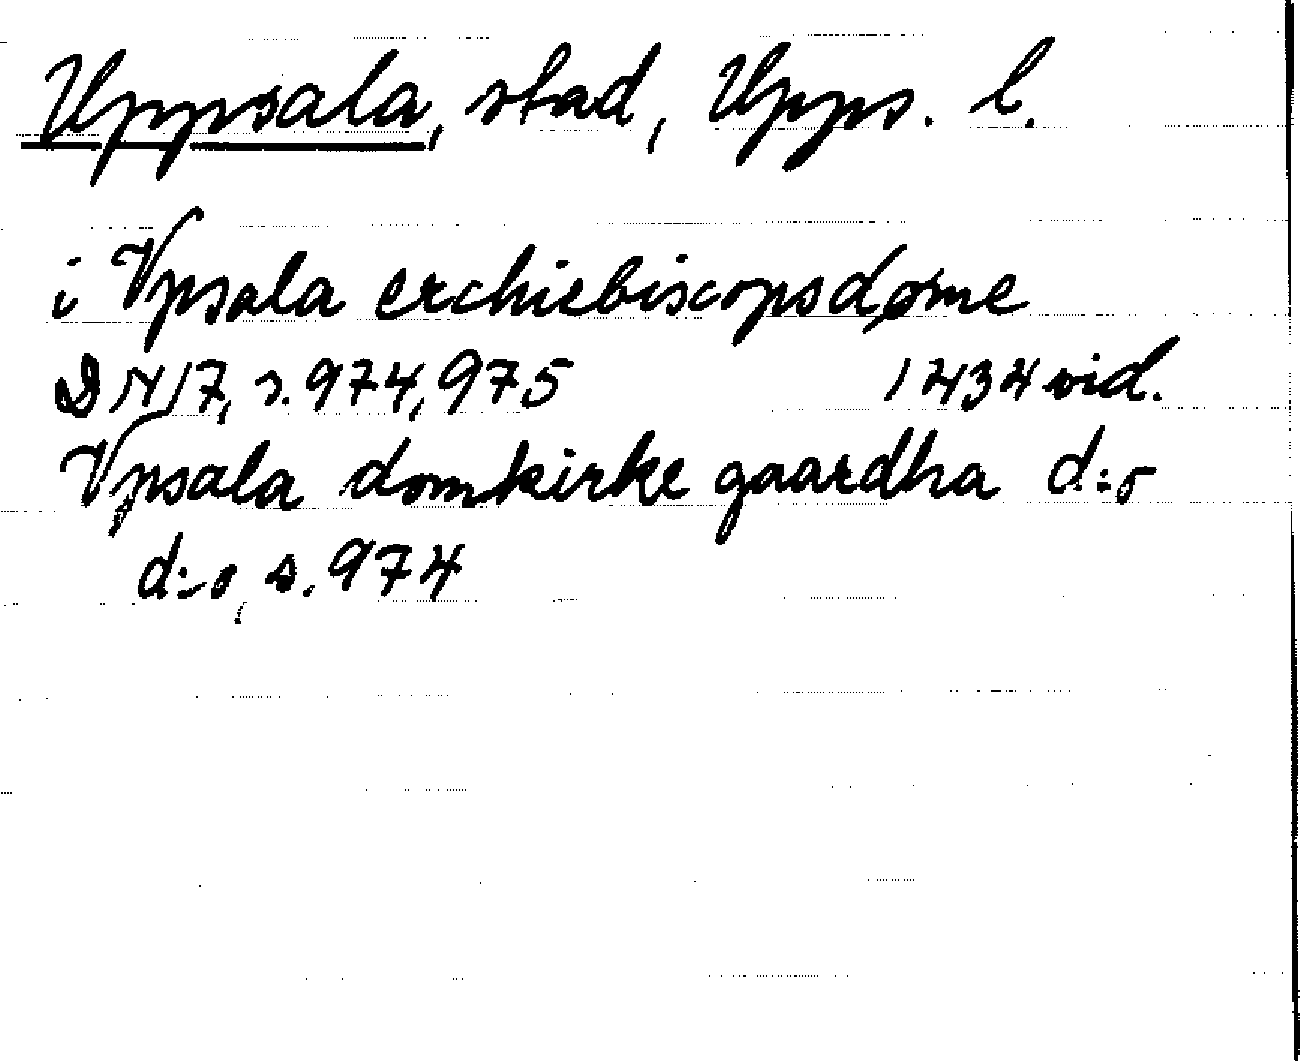 Uppsala, stad, Upps. l.
i Vpsala erchiebiscopsdøme
DN 17, s. 974, 975 1434 vid.
Vpsala domkirke gaardha d:o
d:o, s. 974